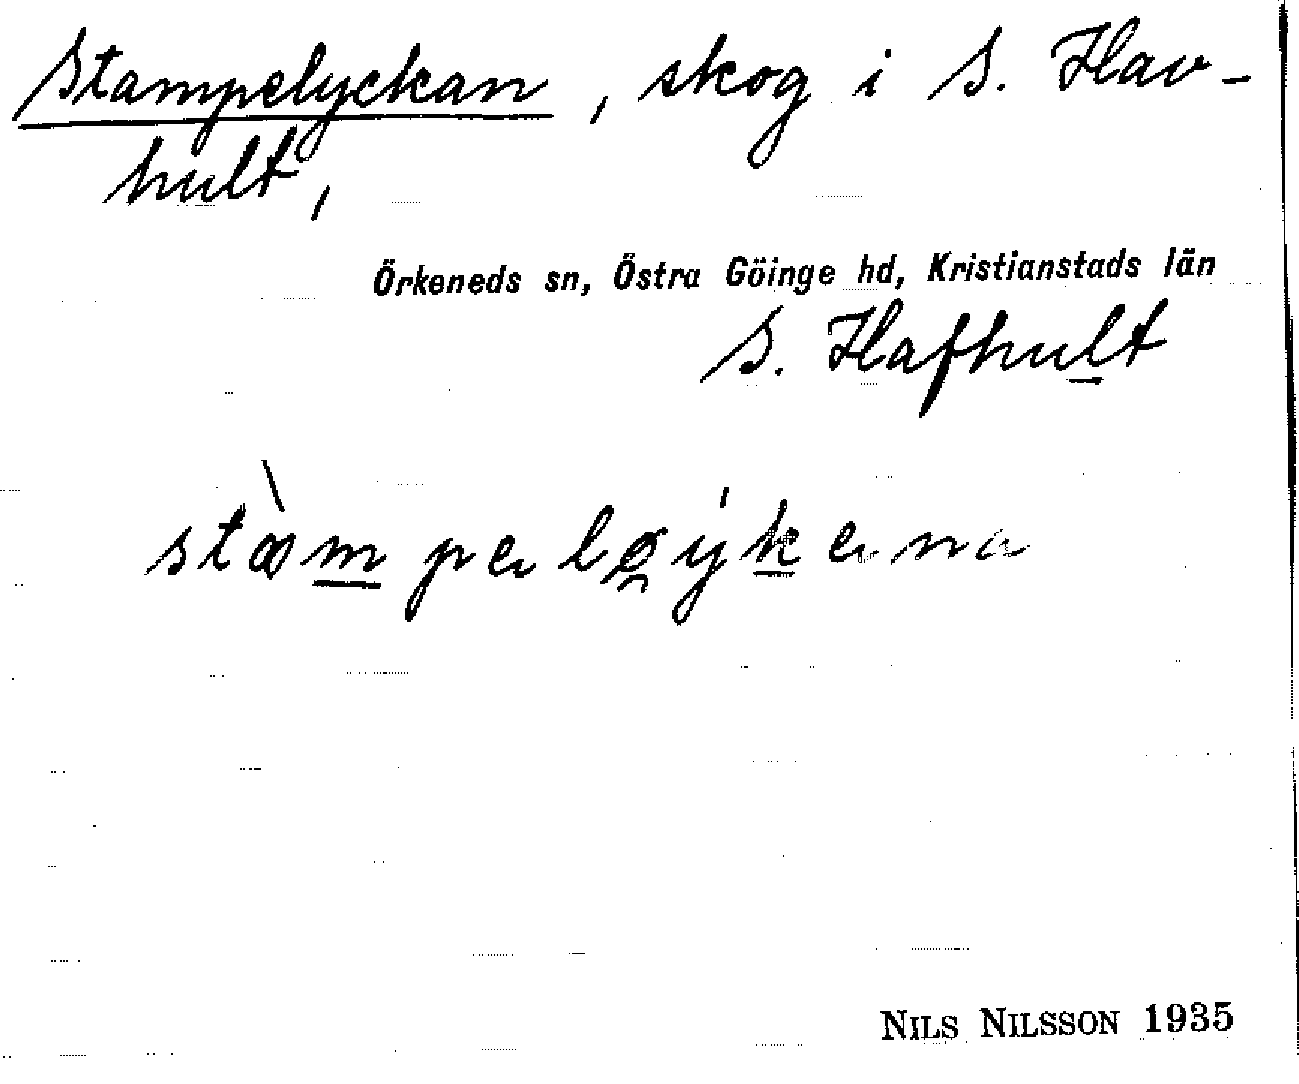 Stampelyckan, skog i S. Hav-
hult,
Örkeneds sn, Östra Göinge hd, Kristianstads län
S. Hafhult
NILS NILSSON 1935